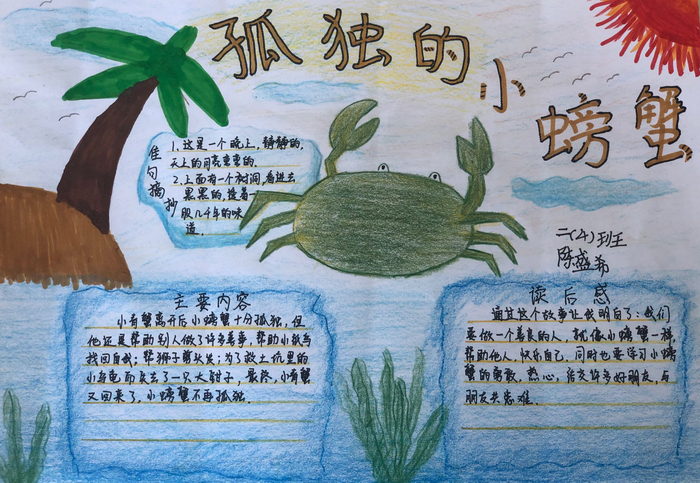 孤独的
小
螃蟹
佳句摘抄
1.这是一个晚上,静静的,
天上的月亮弯弯的.
2.上面有一个树洞,看进去
黑黑的,透着一
股几千年的味
道.
二(4)班
陈盛希
主要内容
小寄蟹离开后小螃蟹十分孤独,但
他还是帮助别人做了许多善事,帮助小鼹鼠
找回自我;帮狮子剪头发;为了救土坑里的
小乌龟而失去了一只大钳子,最终,小寄蟹
又回来了,小螃蟹不再孤独.
读后感
通过这个故事让我明白了:我们
要做一个善良的人,就像小螃蟹一样,
帮助他人,快乐自己,同时也要学习小螃
蟹的勇敢,热心,结交许多好朋友,与
朋友共患难.